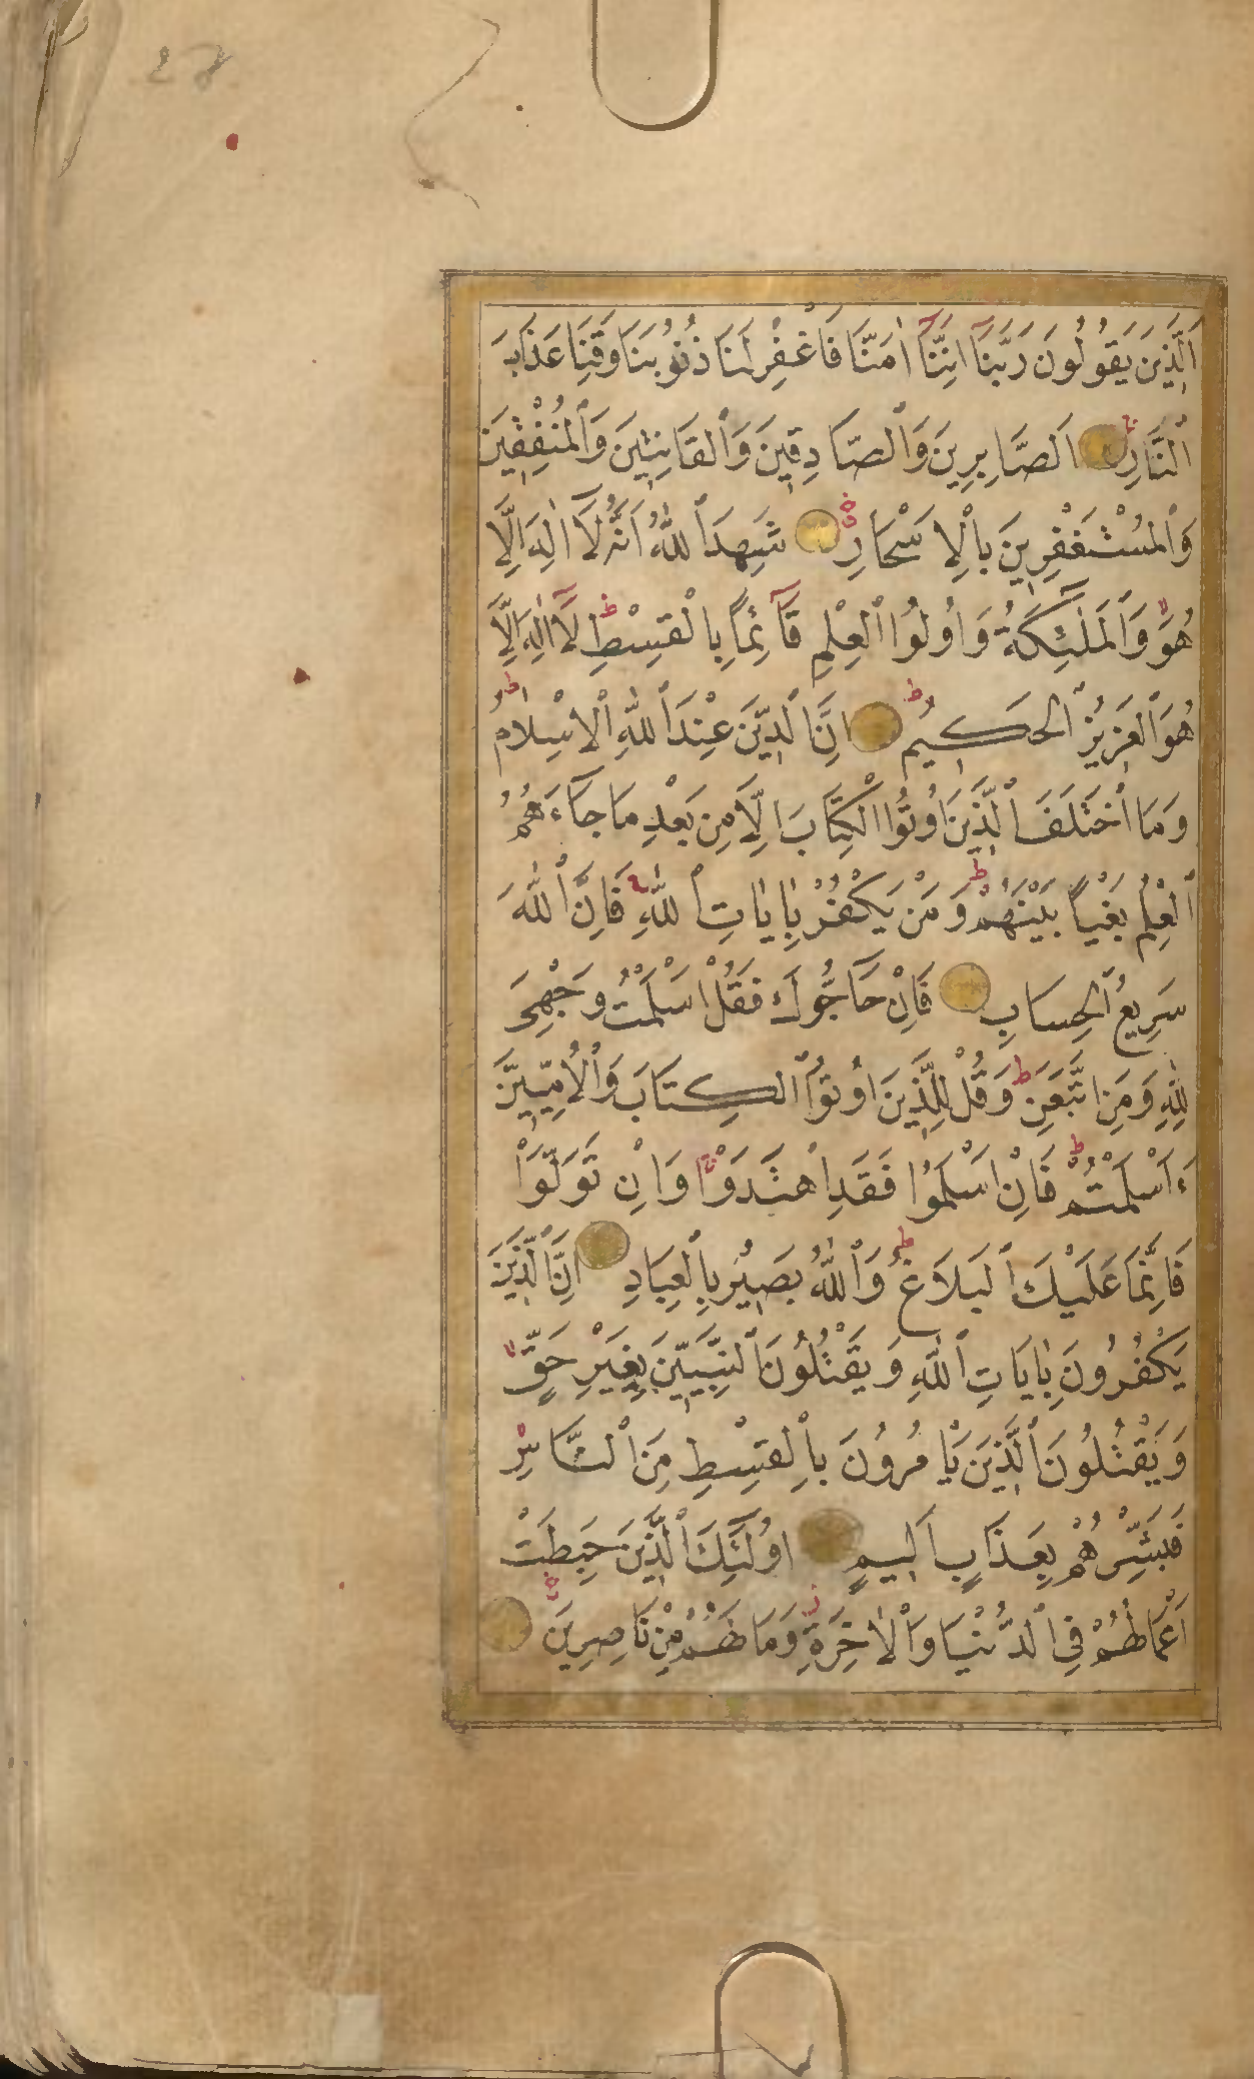 اَلَّذِينَ يَقُولُونَ رَبَّنَا اِنَّنَا اٰمَنَّا فَاغْفِرْ لَنَا ذُنُوبَنَا وَقِنَا عَذَابَ
النَّارِ اَلصَّابِرِينَ وَالصَّادِقِينَ وَالْقَانِتِينَ وَالْمُنْفِقِينَ
وَالْمُسْتَغْفِرِينَ بِالْاَسْحَارِ شَهِدَ اللّٰهُ اَنَّهُ لَا اِلٰهَ اِلَّا
هُوَ وَالْمَلٰئِكَةُ وَاُولُوا الْعِلْمِ قَآئِمًا بِالْقِسْطِ لَا اِلٰهَ اِلَّا
هُوَ الْعَزِيزُ الْحَكِيمُ اِنَّ الدِّينَ عِنْدَ اللّٰهِ الْاِسْلَامُ
وَمَا اخْتَلَفَ الَّذِينَ اُوتُوا الْكِتَابَ اِلَّا مِنْ بَعْدِ مَا جَآءَهُمُ
الْعِلْمُ بَغْيًا بَيْنَهُمْ وَمَنْ يَكْفُرْ بِاٰيَاتِ اللّٰهِ فَاِنَّ اللّٰهَ
سَرِيعُ الْحِسَابِ فَاِنْ حَآجُّوكَ فَقُلْ اَسْلَمْتُ وَجْهِيَ
لِلّٰهِ وَمَنِ اتَّبَعَنِ وَقُلْ لِلَّذِينَ اُوتُوا الْكِتَابَ وَالْاُمِّيِّينَ
ءَاَسْلَمْتُمْ فَاِنْ اَسْلَمُوا فَقَدِ اهْتَدَوْا وَاِنْ تَوَلَّوْا
فَاِنَّمَا عَلَيْكَ الْبَلَاغُ وَاللّٰهُ بَصِيرٌ بِالْعِبَادِ اِنَّ الَّذِينَ
يَكْفُرُونَ بِاٰيَاتِ اللّٰهِ وَيَقْتُلُونَ النَّبِيِّينَ بِغَيْرِ حَقٍّ
وَيَقْتُلُونَ الَّذِينَ يَاْمُرُونَ بِالْقِسْطِ مِنَ النَّاسِ
فَبَشِّرْهُمْ بِعَذَابٍ اَلِيمٍ اُولٰٓئِكَ الَّذِينَ حَبِطَتْ
اَعْمَالُهُمْ فِي الدُّنْيَا وَالْاٰخِرَةِ وَمَا لَهُمْ مِنْ نَاصِرِينَ